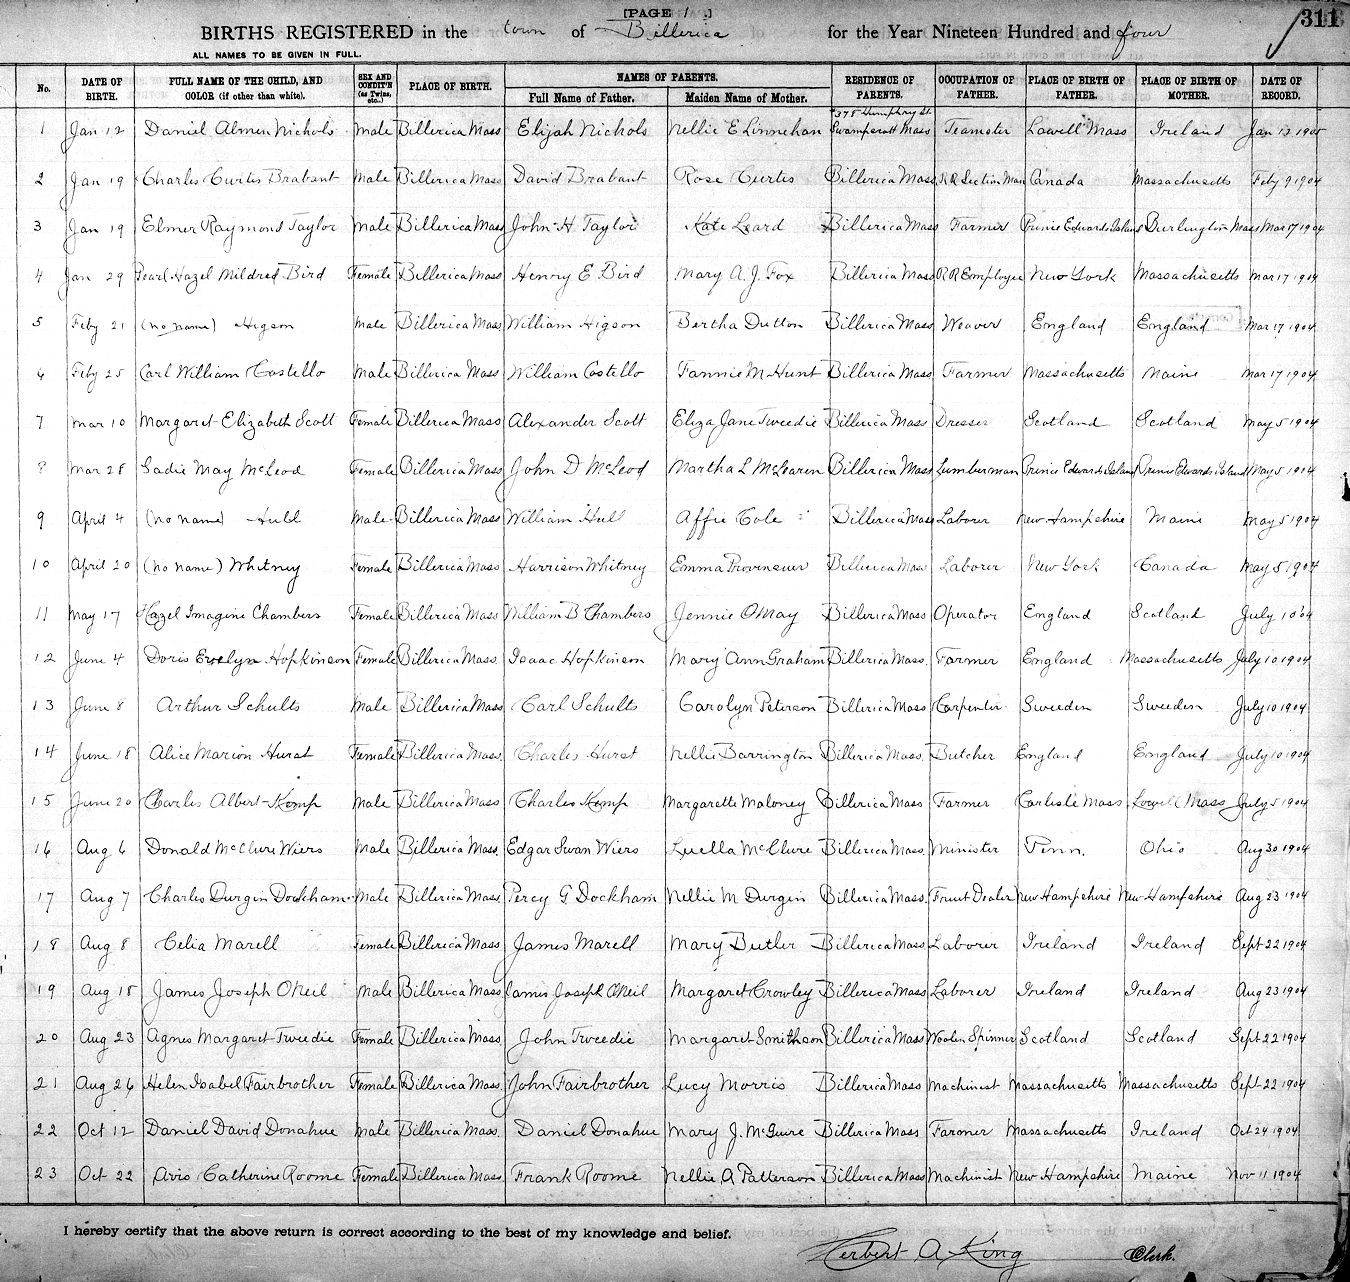 [PAGE 1.]
311
BIRTHS REGISTERED in the town of Billerica for the Year Nineteen Hundred and four
ALL NAMES TO BE GIVEN IN FULL.
No. DATE OF BIRTH. FULL NAME OF THE CHILD, AND COLOR (if other than white). SEX AND CONDIT'N (as Twins, etc.,) PLACE OF BIRTH. NAMES OF PARENTS. Full Name of Father. Maiden Name of Mother. RESIDENCE OF PARENTS. OCCUPATION OF FATHER. PLACE OF BIRTH OF FATHER. PLACE OF BIRTH OF MOTHER. DATE OF RECORD.
1 Jan 12 Daniel Almon Nichols Male Billerica Mass Elijah Nichols Nellie E Linnehan 375 Humphry St. Swampscott Mass Teamster Lowell Mass Ireland Jan 12 1905
2 Jan 19 Charles Curtis Brabant Male Billerica Mass David Brabant Rose Curtis Billerica Mass RR Section Man Canada Massachusetts Feby 9 1904
3 Jan 19 Elmer Raymond Taylor Male Billerica Mass John H Taylor Kate Leard Billerica Mass Farmer Prince Edwards Island Burlington Mass Mar 17 1904
4 Jan 29 Pearl Hazel Mildred Bird Female Billerica Mass Henry E Bird Mary A. J. Fox Billerica Mass RR Employee New York Massachusetts Mar 17 1904
5 Feby 21 (no name) Higson Male Billerica Mass William Higson Bertha Dutton Billerica Mass Weaver England England Mar 17 1904
6 Feby 25 Carl William Costello Male Billerica Mass William Costello Fannie M Hunt Billerica Mass Farmer Massachusetts Maine Mar 17 1904
7 Mar 10 Margaret Elizabeth Scott Female Billerica Mass Alexander Scott Eliza Jane Tweedie Billerica Mass Dresser Scotland Scotland May 5 1904
8 Mar 28 Sadie May McLeod Female Billerica Mass John D McLeod Martha L McLearen Billerica Mass Lumberman Prince Edwards Island Prince Edwards Island May 5 1904
9 April 4 (no name) Hull Male Billerica Mass William Hull Affie Cole Billerica Mass Laborer New Hampshire Maine May 5 1904
10 April 20 (no name) Whitney Female Billerica Mass Harrison Whitney Emma Billerica Mass Laborer New York Canada May 5 1904
11 May 17 Hazel Imagine Chambers Female Billerica Mass William B Chambers Jennie OMay Billerica Mass Operator England Scotland July 10 04
12 June 4 Doris Evelyn Hopkinson Female Billerica Mass. Isaac Hopkinson Mary Ann Graham Billerica Mass. Farmer England Massachusetts July 10 1904
13 June 8 Arthur Schults Male Billerica Mass Carl Schults Carolyn Peterson Billerica Mass Carpenter Sweeden Sweeden July 10 1904
14 June 18 Alice Marion Hurst Female Billerica Mass. Charles Hurst Nellie Barrington Billerica Mass. Butcher England England July 10 1904
15 June 20 Charles Albert Kemp Male Billerica Mass Charles Kemp Margarette Maloney Billerica Mass Farmer Carlisle Mass Lowell Mass July 5 1904
16 Aug 6 Donald McClure Wiers Male Billerica Mass. Edgar Swan Wiers Luella McClure Billerica Mass. Minister Penn. Ohio Aug 30 1904
17 Aug 7 Charles Durgin Dockham Male Billerica Mass. Percy G Dockham Nellie M Durgin Billerica Mass. Fruit Dealer New Hampshire New Hampshire Aug 23 1904
18 Aug 8 Celia Marell Female Billerica Mass. James Marell Mary Butler Billerica Mass Laborer Ireland Ireland Sept 22 1904
19 Aug 18 James Joseph ONeil Male Billerica Mass James Joseph ONeil Margaret Crowley Billerica Mass Laborer Ireland Ireland Aug 23 1904
20 Aug 23 Agnes Margaret Tweedie Female Billerica Mass. John Tweedie Margaret Smithson Billerica Mass Woolen Spinner Scotland Scotland Sept 22 1904
21 Aug 26 Helen Isabel Fairbrother Female Billerica Mass. John Fairbrother Lucy Morris Billerica Mass Machinest Massachusetts Massachusetts Sept 22 1904
22 Oct 12 Daniel David Donahue Male Billerica Mass. Daniel Donahue Mary J. McGuire Billerica Mass Farmer Massachusetts Ireland Oct 24 1904
23 Oct 22 Avis Catherine Roome Female Billerica Mass. Frank Roome Nellie A Patterson Billerica Mass Machinist New Hampshire Maine Nov 11 1904
I hereby certify that the above return is correct according to the best of my knowledge and belief.
Herbert A King Clerk.